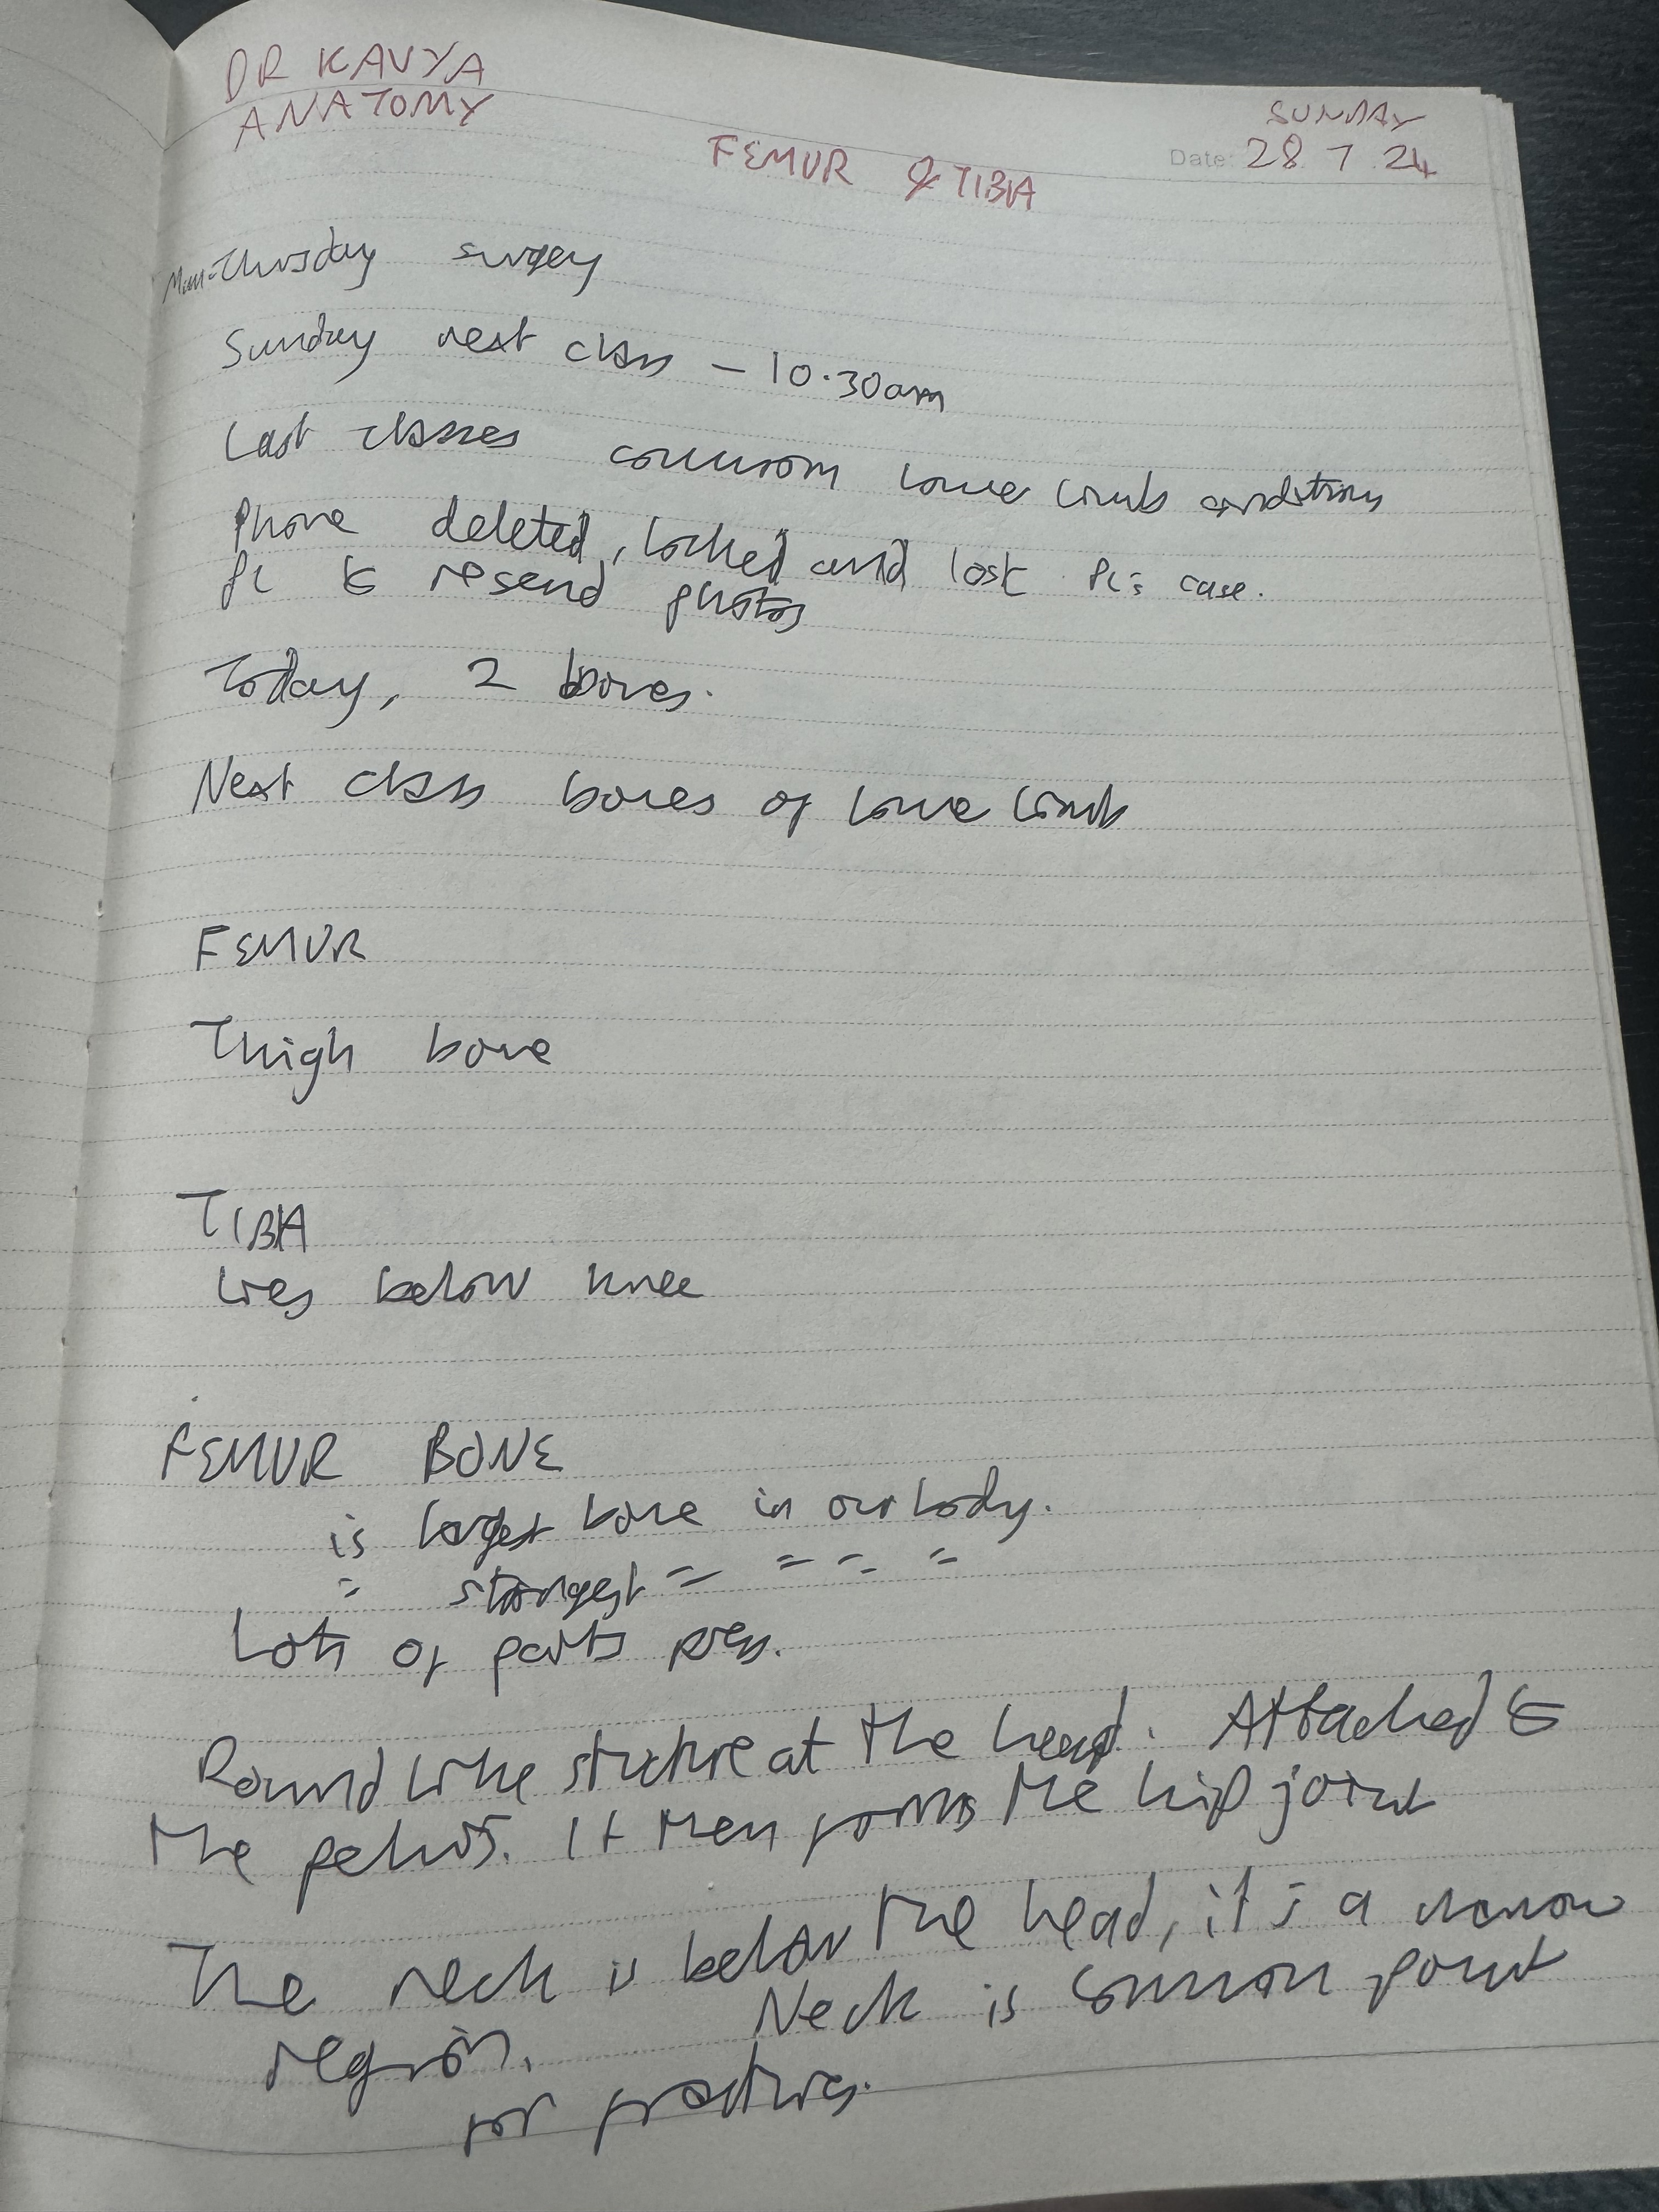 DR KAVYA
ANATOMY
SUNDAY
Date: 28 7 24
FEMUR & TIBIA
Mon-Thursday surgery
Sunday next class - 10.30am
Last classes common lower limb conditions
Phone deleted, locked and lost case.
to resend photos
Today, 2 bones.
Next class bones of lower limb
FEMUR
Thigh bone
TIBIA
Lies below knee
FEMUR BONE
is largest bone in our body.
= strongest = = = =
Lots of parts pres.
Round like structure at the head. Attached to
the pelvis. It then forms the hip joint
The neck is below the head, it is a narrow
region. Neck is common point
for fractures.